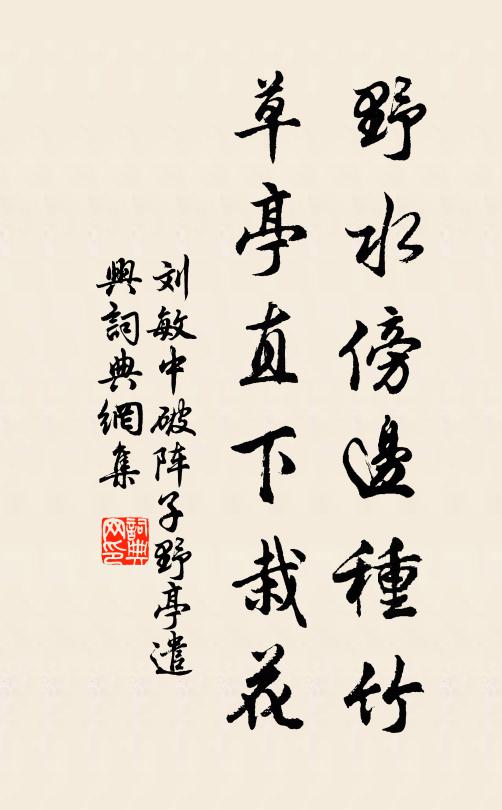 野水傍邊種竹
草亭直下栽花
刘敏中破阵子野亭遣
興詞典網集
詞典网印